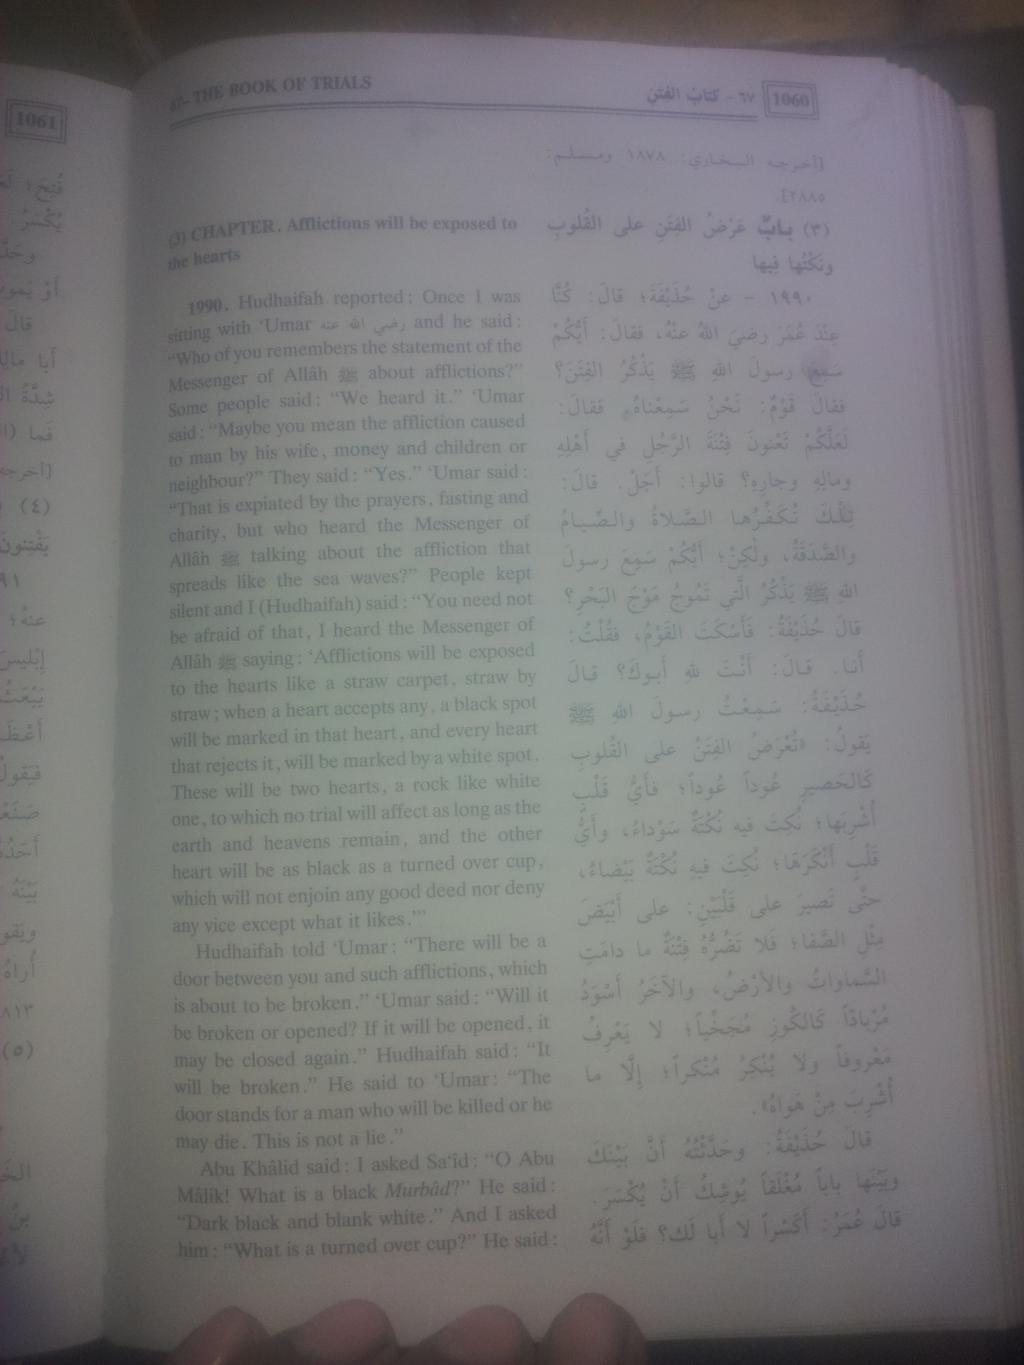 67- THE BOOK OF TRIALS
٦٧ - كتابُ الفِتَنِ
1060
(3) CHAPTER. Afflictions will be exposed to
the hearts
1990. Hudhaifah reported: Once I was
sitting with ‘Umar رضي الله عنه and he said:
“Who of you remembers the statement of the
Messenger of Allâh ﷺ about afflictions?”
Some people said: “We heard it.” ‘Umar
said: “Maybe you mean the affliction caused
to man by his wife, money and children or
neighbour?” They said: “Yes.” ‘Umar said:
“That is expiated by the prayers, fasting and
charity, but who heard the Messenger of
Allâh ﷺ talking about the affliction that
spreads like the sea waves?” People kept
silent and I (Hudhaifah) said: “You need not
be afraid of that, I heard the Messenger of
Allâh ﷺ saying: ‘Afflictions will be exposed
to the hearts like a straw carpet, straw by
straw; when a heart accepts any, a black spot
will be marked in that heart, and every heart
that rejects it, will be marked by a white spot.
These will be two hearts, a rock like white
one, to which no trial will affect as long as the
earth and heavens remain, and the other
heart will be as black as a turned over cup,
which will not enjoin any good deed nor deny
any vice except what it likes.’”
Hudhaifah told ‘Umar: “There will be a
door between you and such afflictions, which
is about to be broken.” ‘Umar said: “Will it
be broken or opened? If it will be opened, it
may be closed again.” Hudhaifah said: “It
will be broken.” He said to ‘Umar: “The
door stands for a man who will be killed or he
may die. This is not a lie.”
Abu Khâlid said: I asked Sa‘îd: “O Abu
Mâlik! What is a black Murbâd?” He said:
“Dark black and blank white.” And I asked
him: “What is a turned over cup?” He said:
[أخرجه البخاري: ١٨٧٨ ومسلم:
٢٨٨٥].
(٣) بابٌ عَرْضُ الفِتَنِ على القُلوبِ
ونَكْتُها فِيها
١٩٩٠ - عنْ حُذَيْفَةَ؛ قالَ: كُنَّا
عِنْدَ عُمَرَ رضيَ اللهُ عنْهُ، فقالَ: أَيُّكُمْ
سَمِعَ رسولَ اللهِ ﷺ يَذْكُرُ الفِتَنَ؟
فقالَ قَوْمٌ: نَحْنُ سَمِعْناهُ، فقالَ:
لَعَلَّكُمْ تَعْنونَ فِتْنَةَ الرَّجُلِ في أَهْلِهِ
ومالِهِ وجارِهِ؟ قالوا: أَجَلْ. قالَ:
تِلْكَ تُكَفِّرُها الصَّلاةُ والصِّيامُ
والصَّدَقَةُ، ولٰكِنْ؛ أَيُّكُمْ سَمِعَ رسولَ
اللهِ ﷺ يَذْكُرُ الَّتي تَمُوجُ مَوْجَ البَحْرِ؟
قالَ حُذَيْفَةُ: فَأَسْكَتَ القَوْمُ، فقُلْتُ:
أنا. قالَ: أَنْتَ للهِ أَبوكَ؟ قالَ
حُذَيْفَةُ: سَمِعْتُ رسولَ اللهِ ﷺ
يَقولُ: «تُعْرَضُ الفِتَنُ على القُلوبِ
كَالحَصيرِ عُوداً عُوداً؛ فأَيُّ قَلْبٍ
أُشْرِبَها؛ نُكِتَ فيهِ نُكْتَةٌ سَوْداءُ، وأَيُّ
قَلْبٍ أَنْكَرَهَا؛ نُكِتَ فيهِ نُكْتَةٌ بَيْضاءُ،
حتَّى تَصيرَ على قَلْبَيْنِ: على أَبْيَضَ
مِثْلِ الصَّفا؛ فَلا تَضُرُّهُ فِتْنَةٌ ما دامَتِ
السَّماواتُ والأرْضُ، والآخَرُ أَسْوَدُ
مُرْبادّاً كَالكُوزِ مُجَخِّياً؛ لا يَعْرِفُ
مَعْروفاً ولا يُنْكِرُ مُنْكراً؛ إلَّا ما
أُشْرِبَ مِنْ هَواهُ».
قالَ حُذَيْفَةُ: وحَدَّثْتُهُ أَنَّ بَيْنَكَ
وبَيْنَها باباً مُغْلَقاً يُوشِكُ أَنْ يُكْسَرَ.
قالَ عُمَرُ: أَكَسْراً لا أَبا لَكَ؟ فَلَوْ أَنَّهُ
1061